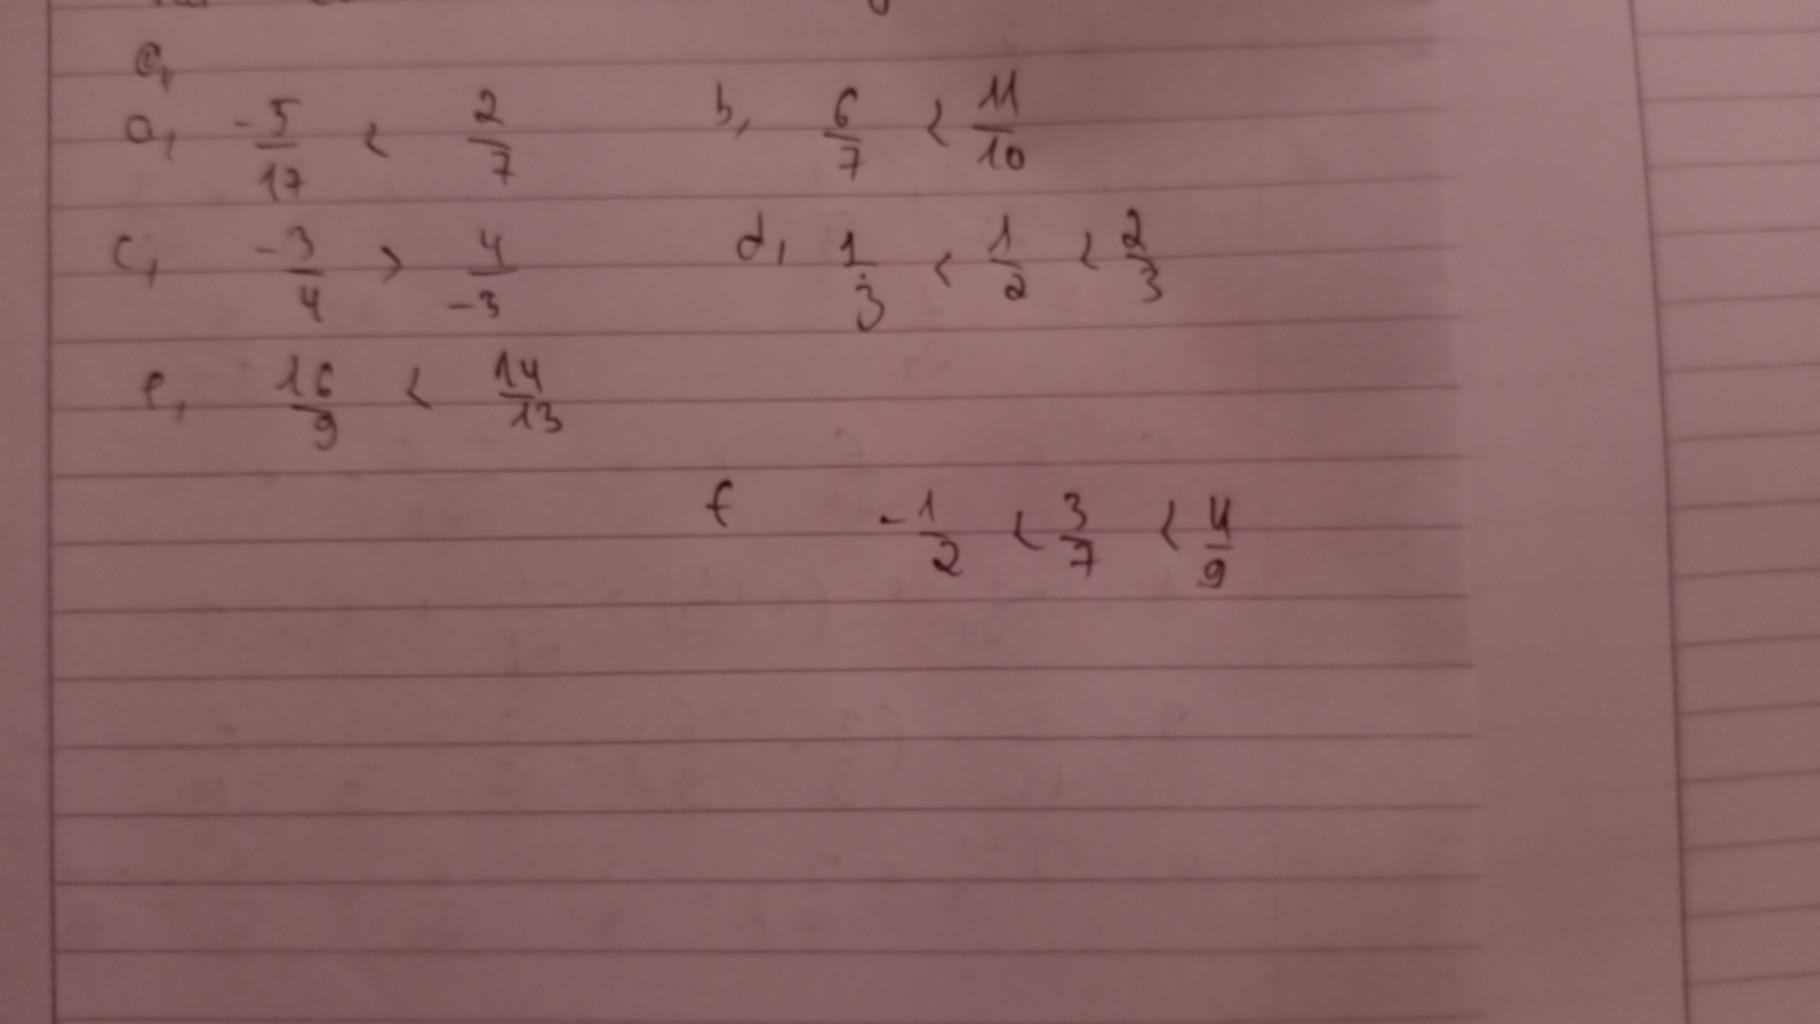 e,
a, -5/17 < 2/7 b, 6/7 < 11/10
c, -3/4 > 4/-3 d, 1/3 < 1/2 < 2/3
e, 16/9 < 14/13
f -1/2 < 3/7 < 4/9